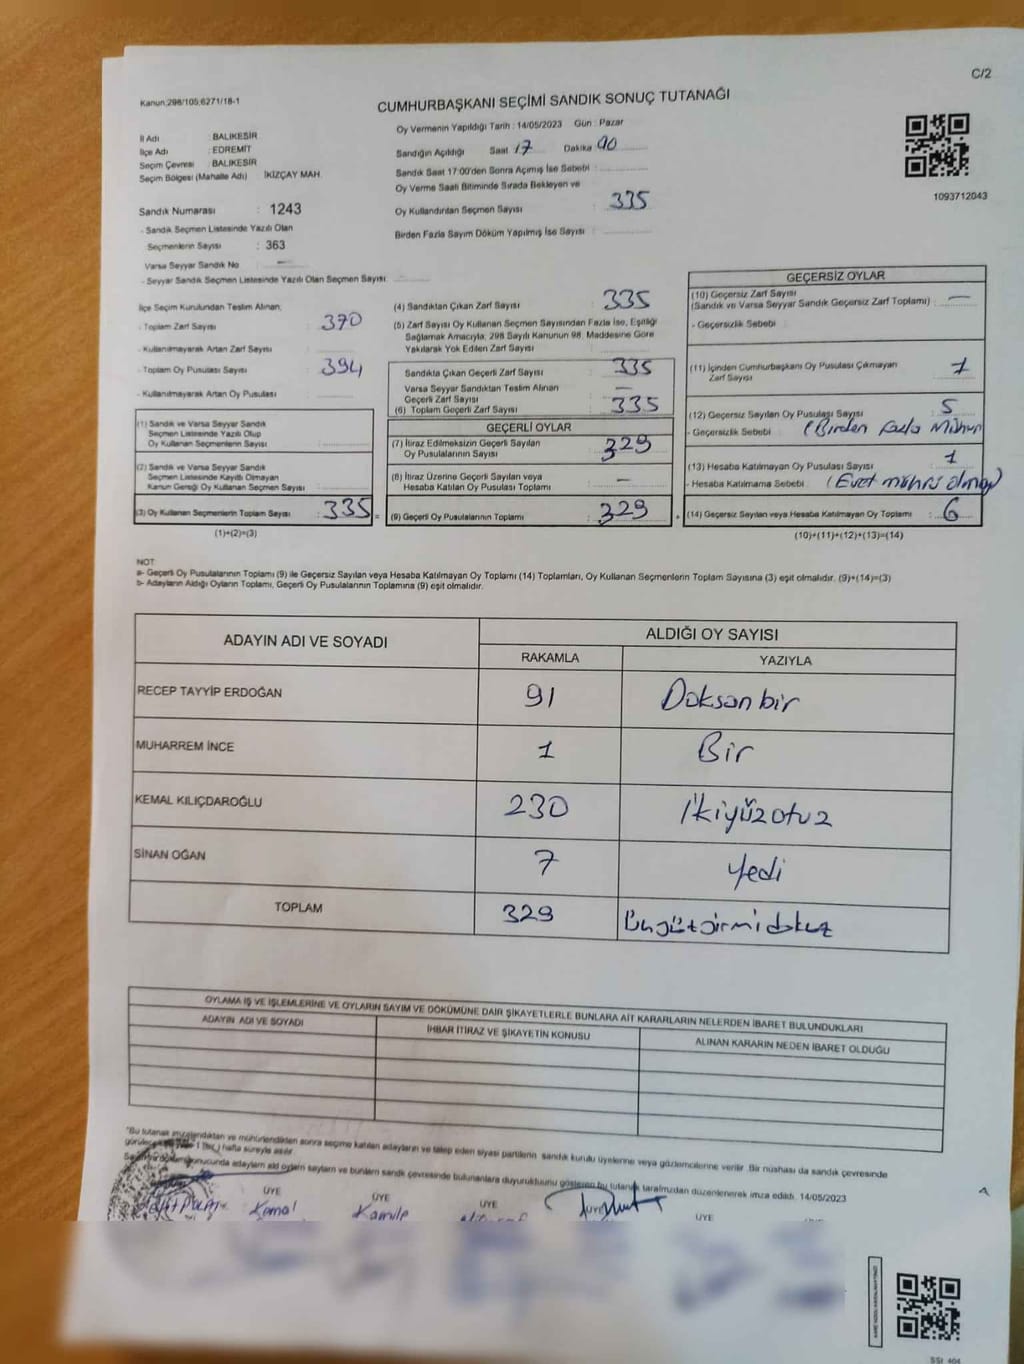 C/2
Kanun;298/105;6271/18-1
CUMHURBAŞKANI SEÇİMİ SANDIK SONUÇ TUTANAĞI
İl Adı : BALIKESİR
İlçe Adı : EDREMİT
Seçim Çevresi : BALIKESİR
Seçim Bölgesi (Mahalle Adı) İKİZÇAY MAH.
Sandık Numarası : 1243
- Sandık Seçmen Listesinde Yazılı Olan
Seçmenlerin Sayısı : 363
Varsa Seyyar Sandık No : —
- Seyyar Sandık Seçmen Listesinde Yazılı Olan Seçmen Sayısı :
Oy Vermenin Yapıldığı Tarih : 14/05/2023 Gün : Pazar
Sandığın Açıldığı Saat 17 Dakika 00
Sandık Saat 17:00'den Sonra Açımış İse Sebebi :
Oy Verme Saati Bitiminde Sırada Bekleyen ve
Oy Kullandırılan Seçmen Sayısı : 335
Birden Fazla Sayım Döküm Yapılmış İse Sayısı :
1093712043
İlçe Seçim Kurulundan Teslim Alınan;
- Toplam Zarf Sayısı : 370
- Kullanılmayarak Artan Zarf Sayısı :
- Toplam Oy Pusulası Sayısı : 394
- Kullanılmayarak Artan Oy Pusulası :
(1) Sandık ve Varsa Seyyar Sandık
Seçmen Listesinde Yazılı Olup
Oy Kullanan Seçmenlerin Sayısı :
(2) Sandık ve Varsa Seyyar Sandık
Seçmen Listesinde Kaydı Olmayan
Kanun Gereği Oy Kullanan Seçmen Sayısı :
(3) Oy Kullanan Seçmenlerin Toplam Sayısı : 335 =
(1)+(2)=(3)
(4) Sandıktan Çıkan Zarf Sayısı : 335
(5) Zarf Sayısı Oy Kullanan Seçmen Sayısından Fazla İse, Eşitliği
Sağlamak Amacıyla, 298 Sayılı Kanunun 98. Maddesine Göre
Yakılarak Yok Edilen Zarf Sayısı :
Sandıkta Çıkan Geçerli Zarf Sayısı : 335
Varsa Seyyar Sandıktan Teslim Alınan
Geçerli Zarf Sayısı : —
(6) Toplam Geçerli Zarf Sayısı : 335
GEÇERLİ OYLAR
(7) İtiraz Edilmeksizin Geçerli Sayılan
Oy Pusulalarının Sayısı : 329
(8) İtiraz Üzerine Geçerli Sayılan veya
Hesaba Katılan Oy Pusulası Toplamı : —
(9) Geçerli Oy Pusulalarının Toplamı : 329 +
GEÇERSİZ OYLAR
(10) Geçersiz Zarf Sayısı
(Sandık ve Varsa Seyyar Sandık Geçersiz Zarf Toplamı) : —
- Geçersizlik Sebebi :
(11) İçinden Cumhurbaşkanı Oy Pusulası Çıkmayan
Zarf Sayısı : 1
(12) Geçersiz Sayılan Oy Pusulası Sayısı : 5
- Geçersizlik Sebebi : (Birden Fazla Mühür
(13) Hesaba Katılmayan Oy Pusulası Sayısı : 1
- Hesaba Katılmama Sebebi : (Evet mührü olmay)
(14) Geçersiz Sayılan veya Hesaba Katılmayan Oy Toplamı : 6
(10)+(11)+(12)+(13)=(14)
NOT:
a- Geçerli Oy Pusulalarının Toplamı (9) ile Geçersiz Sayılan veya Hesaba Katılmayan Oy Toplamı (14) Toplamları, Oy Kullanan Seçmenlerin Toplam Sayısına (3) eşit olmalıdır. (9)+(14)=(3)
b- Adayların Aldığı Oyların Toplamı, Geçerli Oy Pusulalarının Toplamına (9) eşit olmalıdır.
ADAYIN ADI VE SOYADI
ALDIĞI OY SAYISI
RAKAMLA YAZIYLA
RECEP TAYYİP ERDOĞAN 91 Doksanbir
MUHARREM İNCE 1 Bir
KEMAL KILIÇDAROĞLU 230 İkiyüzotuz
SİNAN OĞAN 7 Yedi
TOPLAM 329 Üçyüzyirmidokuz
OYLAMA İŞ VE İŞLEMLERİNE VE OYLARIN SAYIM VE DÖKÜMÜNE DAİR ŞİKAYETLERLE BUNLARA AİT KARARLARIN NELERDEN İBARET BULUNDUKLARI
ADAYIN ADI VE SOYADI
İHBAR İTİRAZ VE ŞİKAYETİN KONUSU
ALINAN KARARIN NEDEN İBARET OLDUĞU
"Bu tutanak imzalandıktan ve mühürlendikten sonra seçime katılan adayların ve talep eden siyasi partilerin sandık kurulu üyelerine veya gözlemcilerine verilir. Bir nüshası da sandık çevresinde
hafta süreyle asılır.
sonucunda adayların ald oyların sayılarını ve bunların sandık çevresinde bulunanlara duyurulduğunu gösteren bu tutanak tarafımızdan düzenlenerek imza edildi. 14/05/2023
ÜYE ÜYE ÜYE ÜYE ÜYE
Kemal Kamile
SSI 404